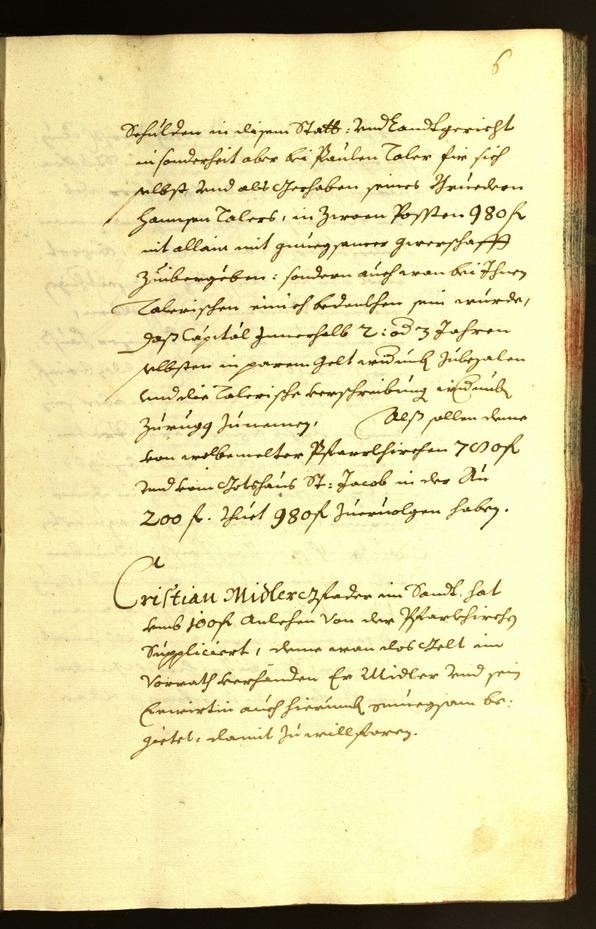 6
Schulden in disem Statt: und Landtgericht
insonderheit aber bei Paulen Taler für sich
selbst und als Gerhaben seines Brüedern
Hannsen Talers, in Zwoen Possten 980 f
nit allain mit gnuegsamer gwerschafft
Zuibergeben: sondern auch wan bei Ihnen
Talerischen einich bedenkhen sein wurde,
das Capital Innerhalb 2: od 3 Jahren
selbsten in parem Gelt widumb Zubezalen
und die Talerische verschreibung widumb
Zurugg Zunemen, Also sollen deme
von wolbemelter Pfarrkhirchen 780 f
und vom Gotshaus St: Jacob in der Au
200 f. thuet 980 f Zuervolgen haben.
Cristian Midler Pfader im Sandt. hat
umb 100 f Anlehen von der Pfarrkhirchen
Suppliciert, deme wan das Gelt im
Vorrath verhanden Er Midler und sein
Eewirtin auch hierumb gnuegsam
damit Zu willfaren.